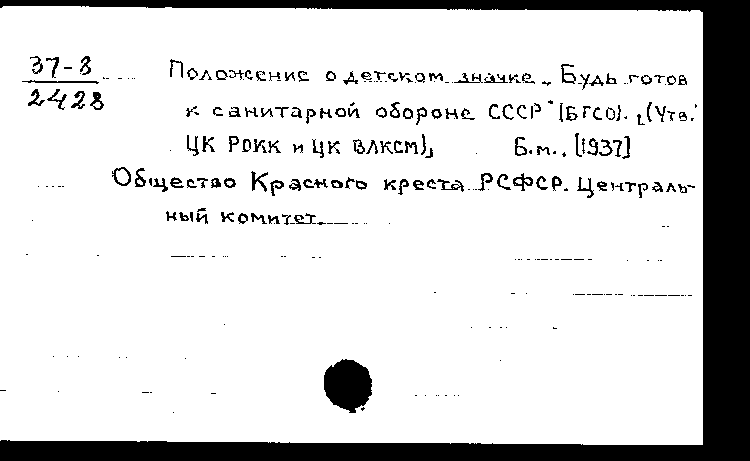 37-8
2428
Положение о детском значке „Будь готов
к санитарной обороне СССР" (БГСО). [(Утв.
ЦК РОКК и ЦК ВЛКСМ)] Б.м., [1937]
Общество Красного креста РСФСР. Централь-
ный комитет.